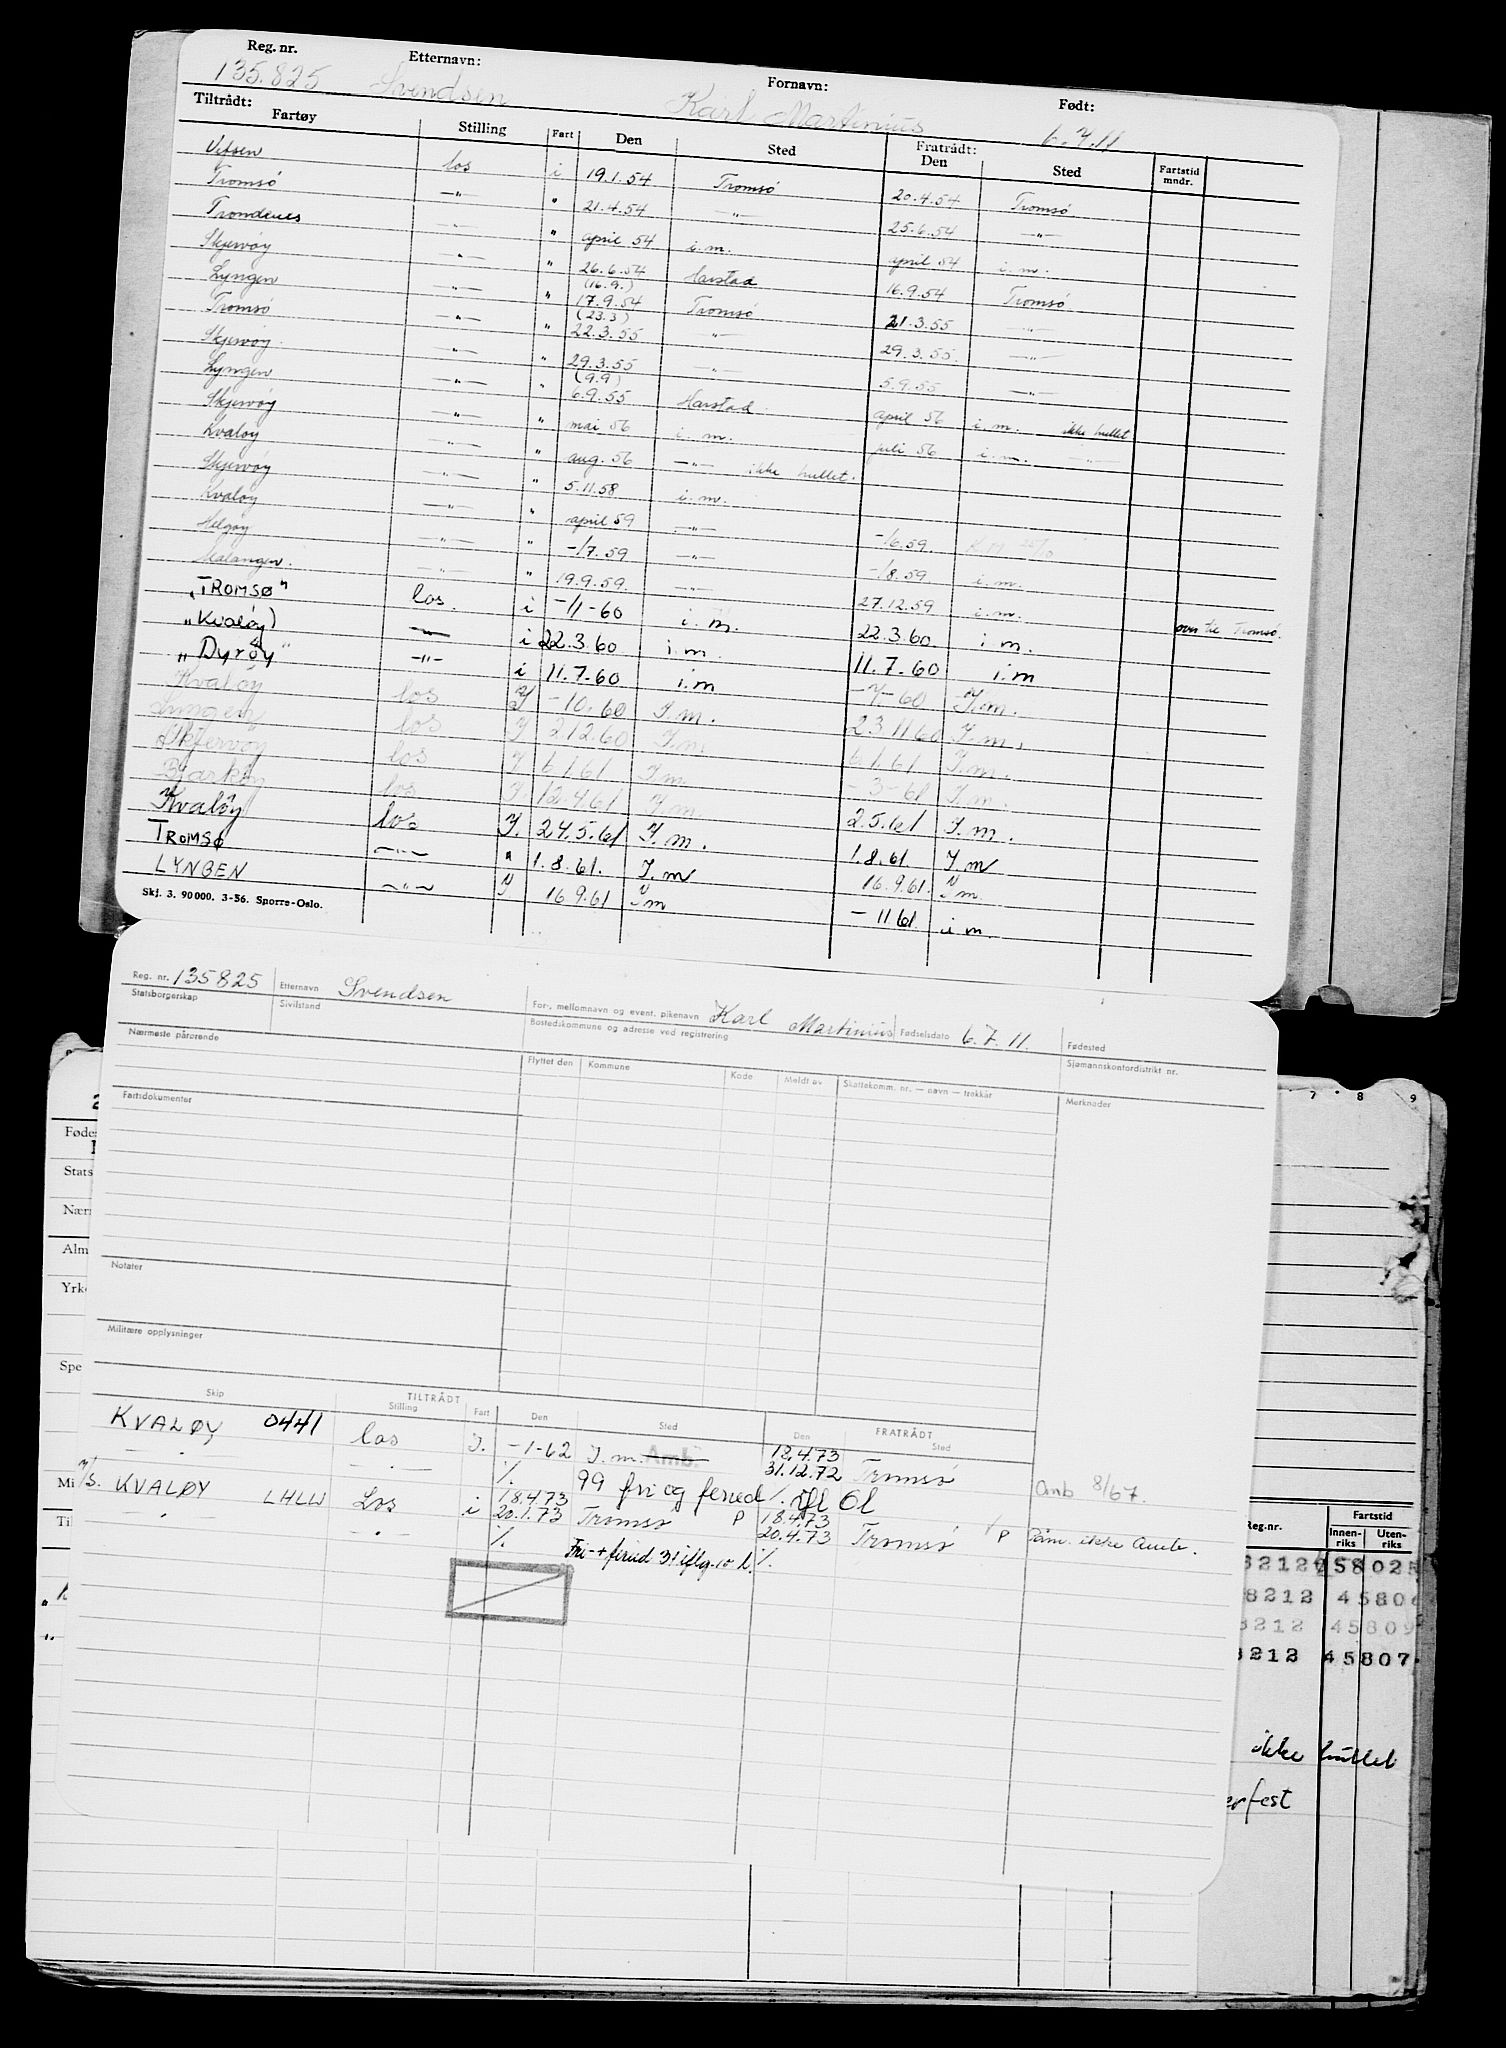 Reg. nr. Etternavn: Fornavn: Født:
135.825 Svendsen Karl Martinius 6.7.11
Tiltrådt: Fratrådt:
Fartøy Stilling Fart Den Sted Den Sted Fartstid mndr.
Vefsen los i 19.1.54 Tromsø 20.4.54 Tromsø
Tromsø —"— " 21.4.54 —"— 25.6.54 —"—
Trondenes —"— " april 54 i.m. april 54 i.m.
Skjervøy —"— " 26.6.54 Harstad 16.9.54 Tromsø
Lyngen —"— " (16.9.) 17.9.54 Tromsø 21.3.55 —"—
Tromsø —"— " (23.3) 22.3.55 —"— 29.3.55 —"—
Skjervøy —"— " 29.3.55 —"— 5.9.55 —"—
Lyngen —"— " (9.9) 6.9.55 Harstad april 56 i.m. ikke hullet
Skjervøy —"— " mai 56 i.m. juli 56 i.m. —"—
Kvaløy —"— " aug. 56 —"— ikke hullet.
Skjervøy —"— " 5.11.58 i.m.
Kvaløy —"— " april 59 —"— -/6.59.
Helgøy —"— " -/7.59 —"— -/8.59 i.m.
Malangen. —"— " 19.9.59. —"— 27.12.59 i.m.
"TROMSØ" los. i -/1-60 i.m. 22.3.60. i m. over til Tromsø.
"Kvaløy) —"— i 22.3.60 i.m. 11.7.60 i.m
"Dyrøy" —"— i 11.7.60 i.m -7-60 I.m.
Kvaløy los I -10.60 I.m. 23.11.60 I.m.
Lyngen los I 2.12.60 I.m 6.1.61 I.m.
Skjervøy los I 6.1.61 I.m. -3-61 I.m.
Bjarkøy los I. 12.4.61 I.m. 2.5.61 I.m.
Kvaløy los I. 24.5.61 I.m. 1.8.61. I.m
TROMSØ —"— " 1.8.61. I.m 16.9.61. I m.
LYNGEN —"— I 16.9.61 I m - 11 61. i m.
Skj. 3. 90000. 3-56. Sporre-Oslo.
Reg. nr. 135825 Etternavn Svendsen For-, mellomnavn og event. pikenavn Karl Martinius Fødselsdato 6.7.11. Fødested
Statsborgerskap Sivilstand Bostedskommune og adresse ved registrering Sjømannskontordistrikt nr.
Nærmeste pårørende Flyttet den Kommune Kode Meldt av Skattekomm. nr. — navn — trekkår Merknader
Fartsdokumenter
Notater
Militære opplysninger
TILTRÅDT FRATRÅDT
Skip Stilling Fart Den Sted Den Sted
KVALØY 0441 los I. -1-62 I.m. Amb. 18.4.73 31.12.72 Tromsø
—"— —"— ·/. 99 fri og feried ·/. ifl 6l Amb 8/67.
M/S. KVALØY LHLW Los i 18.4.73 20.1.73 Tromsø P 18.4.73 20.4.73 Tromsø P Påm. ikke Amb.
—"— —"— ·/. Fri-+feried 31 iflg. 10 l. ·/.
7 8 9
Føde
Stats
Nær
Alm
Yrk
Spe
Mi
Til
Reg.nr. Fartstid
Innenriks Utenriks
8212 458025
8212 45806
8212 45809
8212 45807
ikke hullet